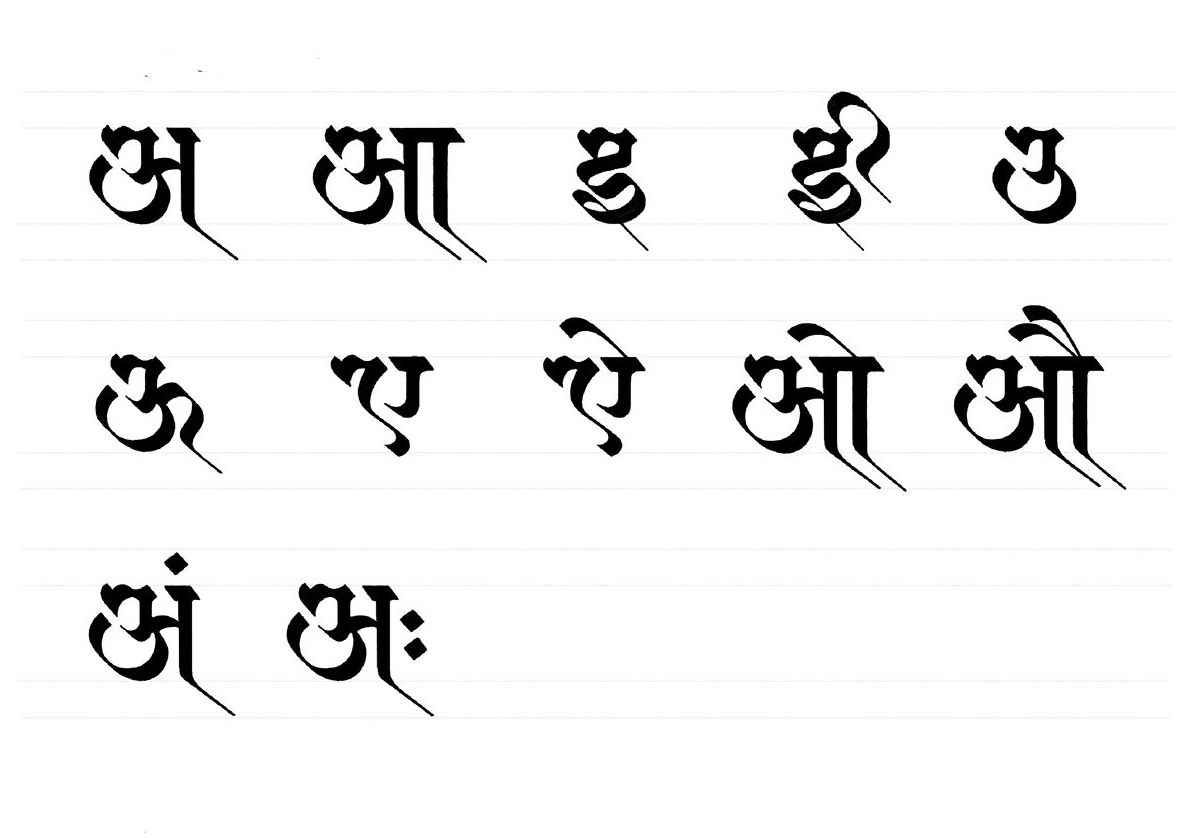 अ आ इ ई उ
ऊ ए ऐ ओ औ
अं अः